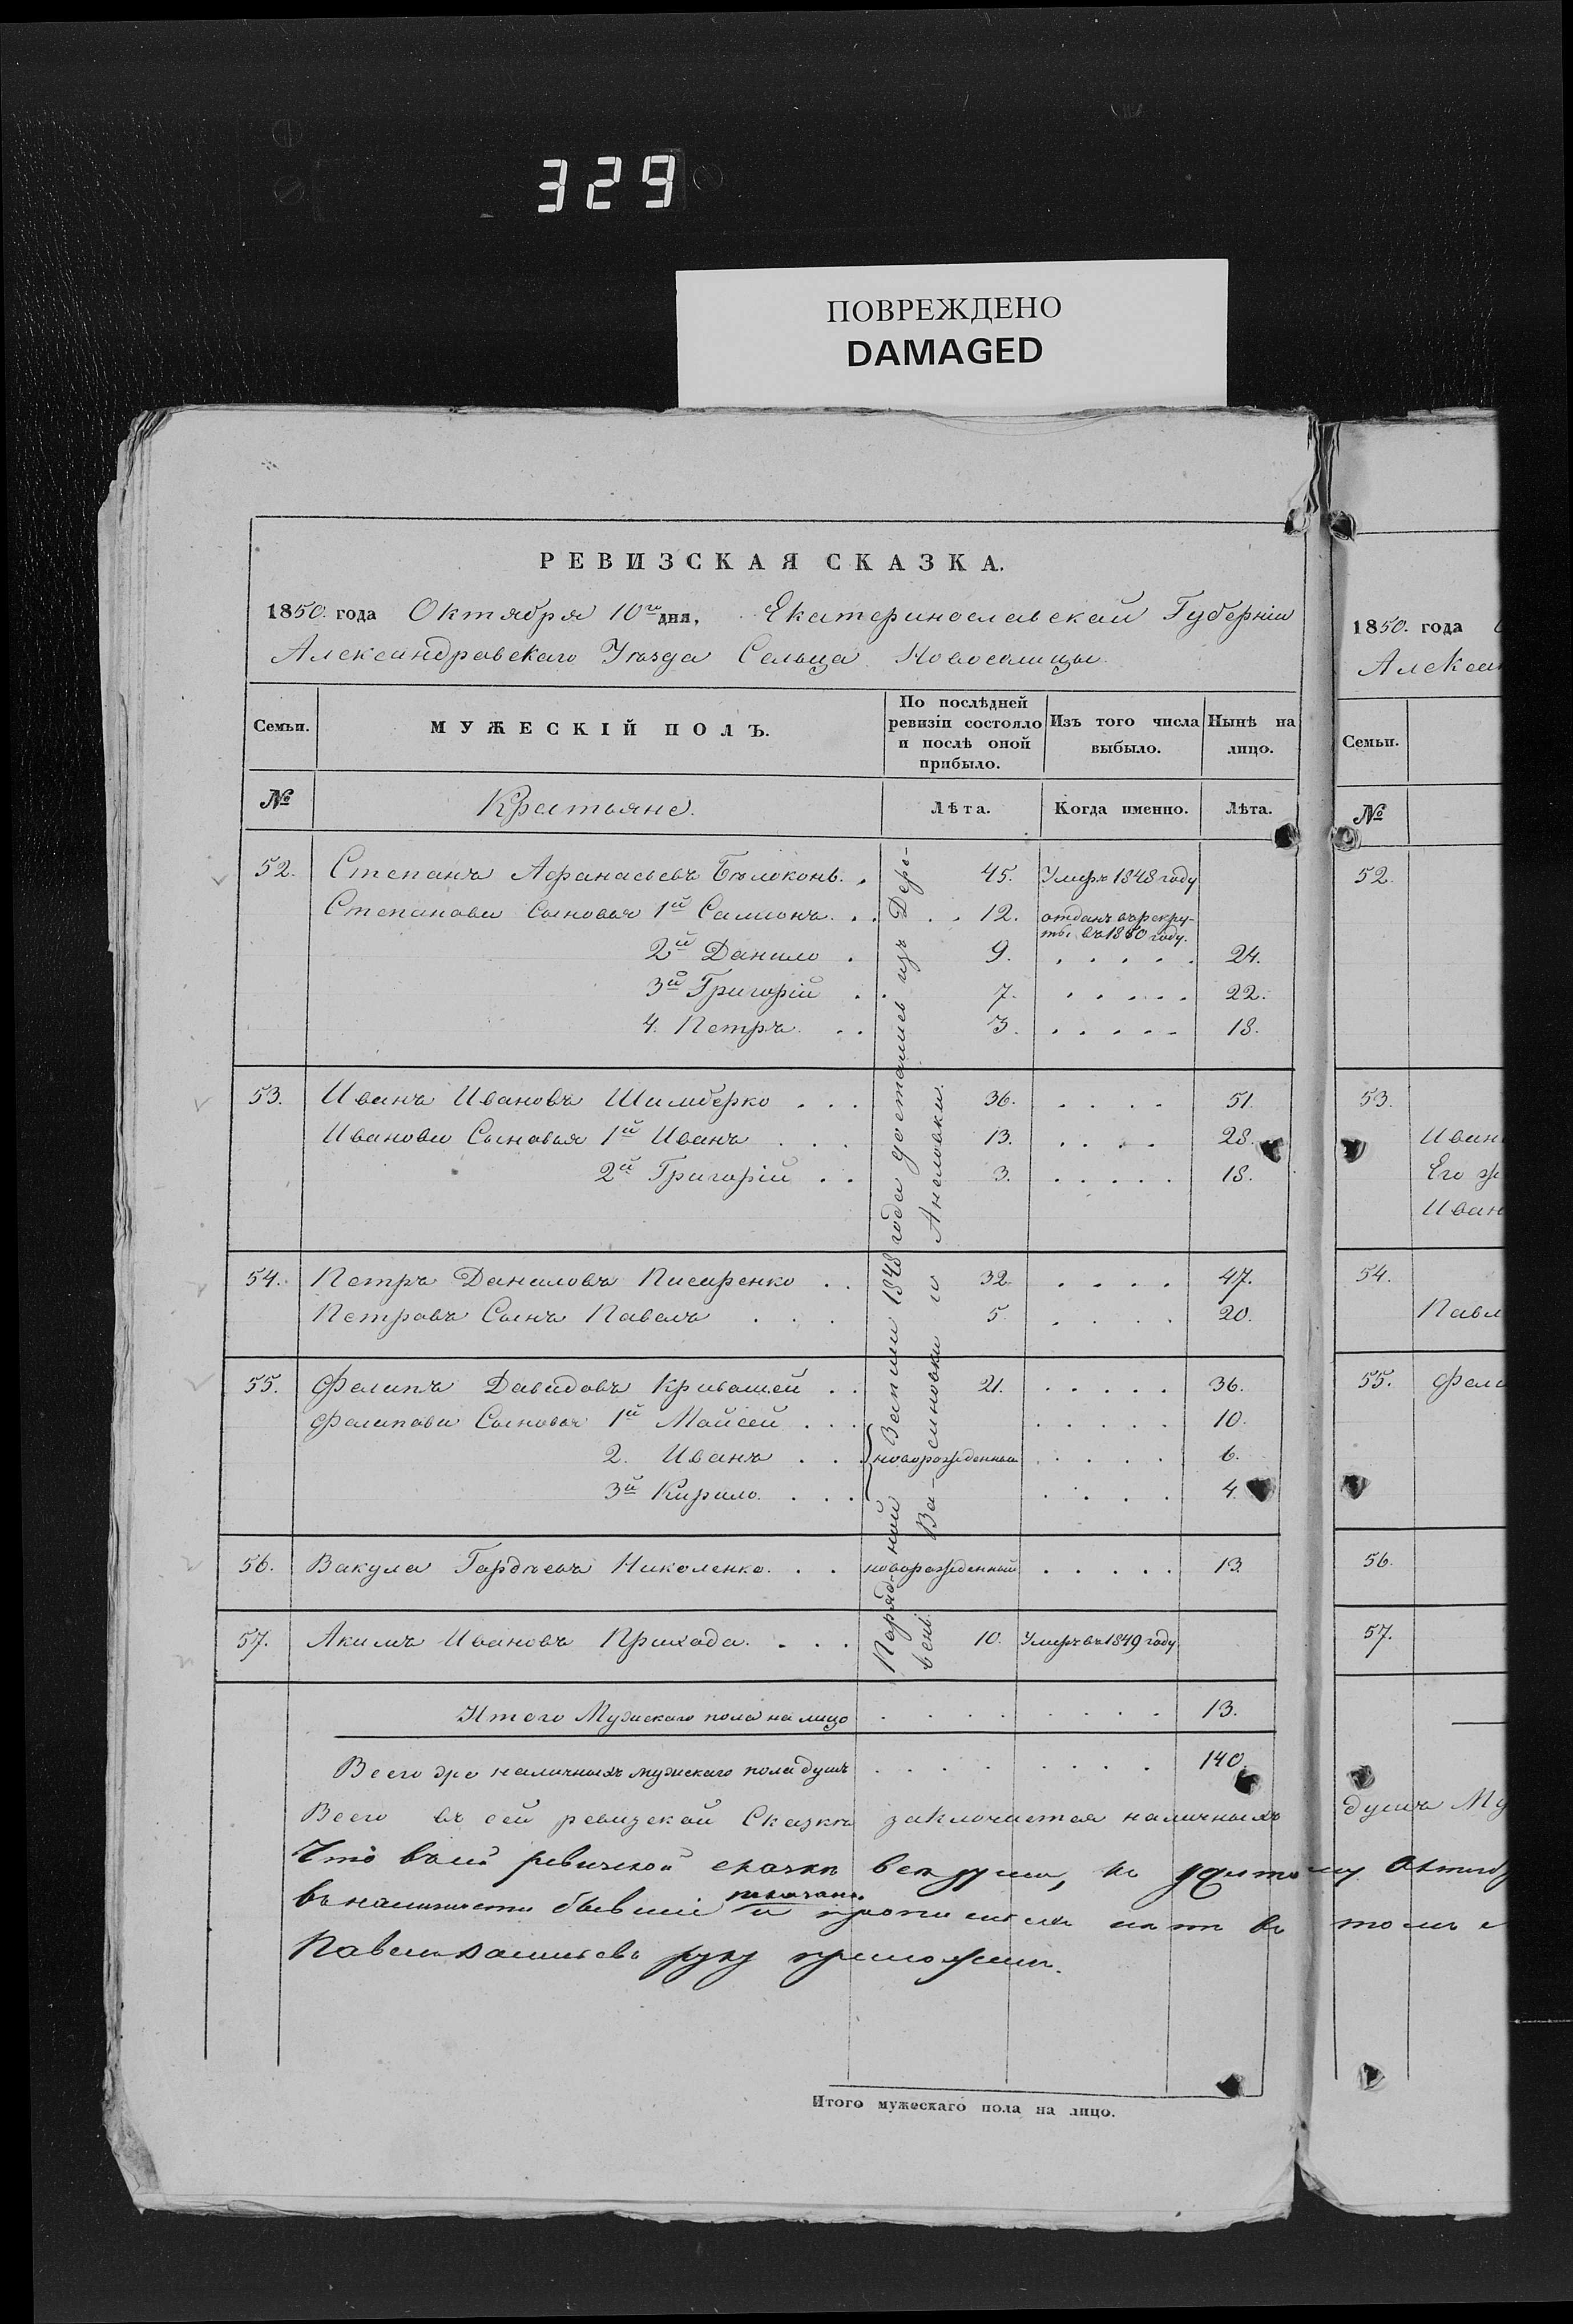 329
ПОВРЕЖДЕНО
DAMAGED
РЕВИЗСКАЯ СКАЗКА.
1850. года Октября 10го дня, Екатеринославской Губерніи
Александровскаго Уѣзда Сельца Новоселицы
Семьи.
МУЖЕСКІЙ ПОЛЪ.
По послѣдней ревизіи состояло и послѣ оной прибыло.
Изъ того числа выбыло.
Нынѣ на лицо.
№ Крестьяне. Лѣта. Когда именно. Лѣта.
52. Степанъ Афанасьевъ Бѣлоконь. 45. Умеръ 1848 году
Степановы Сыновья 1й Самсонъ 12. отданъ въ рекру-
ты въ 1840 году.
2й Данило 9. 24.
3й Григорій 7. 22.
4. Петръ 3. 18.
53. Иванъ Ивановъ Шимберко 36. 51.
Ивановы Сыновья 1й Иванъ 13. 28.
2й Григорій 3. 18.
54. Петръ Даниловъ Писаренко 32. 47.
Петровъ Сынъ Павелъ 5. 20.
55. Филипъ Давидовъ Кривошей 21. 36.
Филиповы Сыновья 1й Мойсей 10.
2. Иванъ новорожденныи 6.
3й Кирило. 4.
56. Вакула Гордѣевъ Николенко. новорожденный 13.
57. Акимъ Ивановъ Приходa. 10. Умеръ въ 1849 году
1848 года достались изъ Дере-
вень
Итого Мужескаго пола на лицо 13.
Всего же наличныхъ мужескаго пола душъ 140.
Всего въ сей ревизской Сказкѣ заключается наличныхъ
Что въ сей ревизской сказкѣ всѣ души, къ
въ наличности бывшіе показаны и нѣтъ въ
Павелъ руку приложилъ.
Итого мужескаго пола на лицо.
1850. года
Алексан
Семьи.
№
52
53.
Иван
Его
Иван
54.
Павл
55. Фили
56.
57.
душъ Му